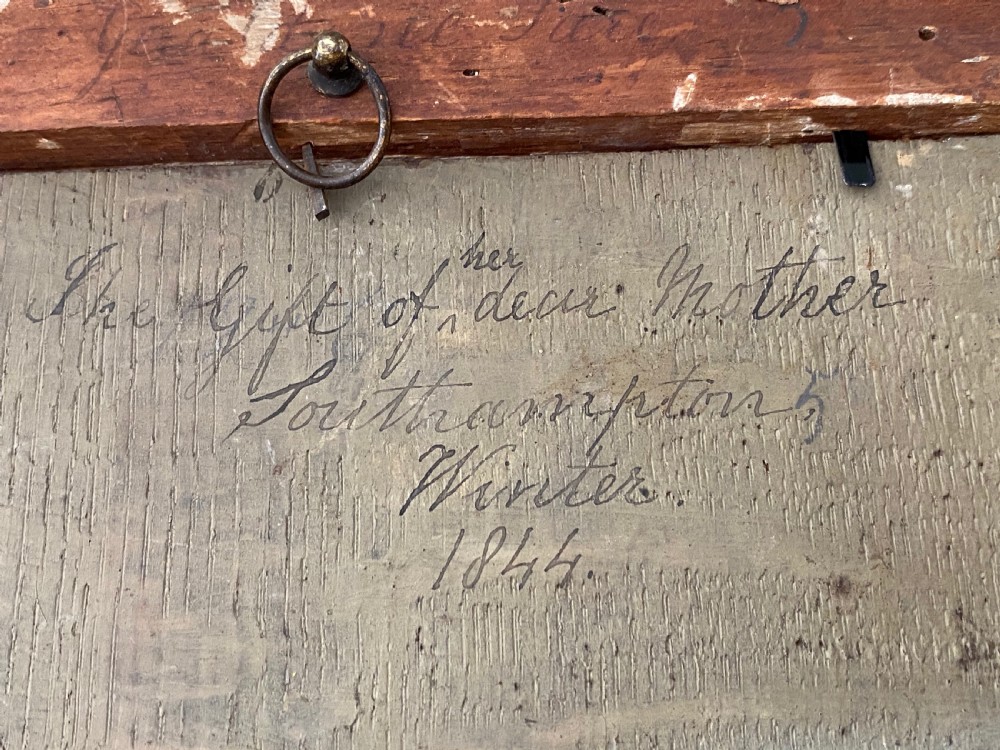 The Gift of her dear Mother
Southampton, 5
Winter.
1844.